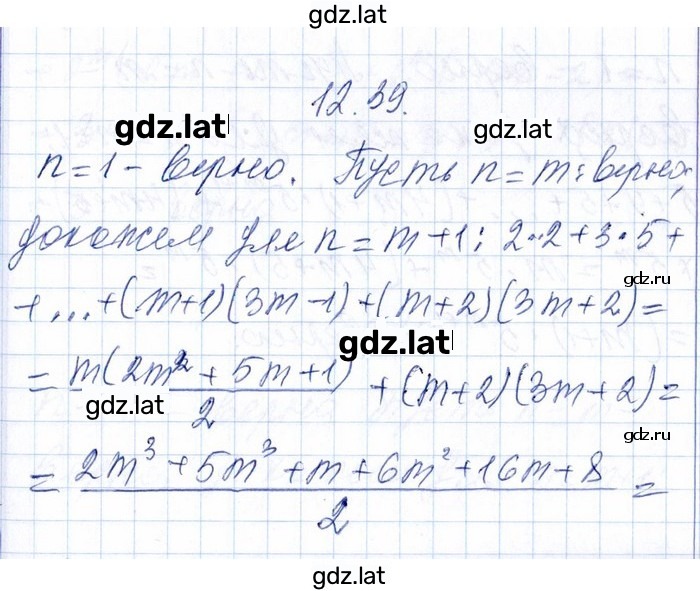 gdz.lat
12.39.
gdz.lat gdz.lat
n=1 - верно. Пусть n=m: верно,
докажем для n=m+1: 2·2+3·5+
gdz.lat
+...+(m+1)(3m-1)+(m+2)(3m+2)=
gdz.lat
= m(2m²+5m+1)/2 + (m+2)(3m+2)=
gdz.lat
gdz.lat
= 2m³+5m³+m+6m²+16m+8/2 =
gdz.lat